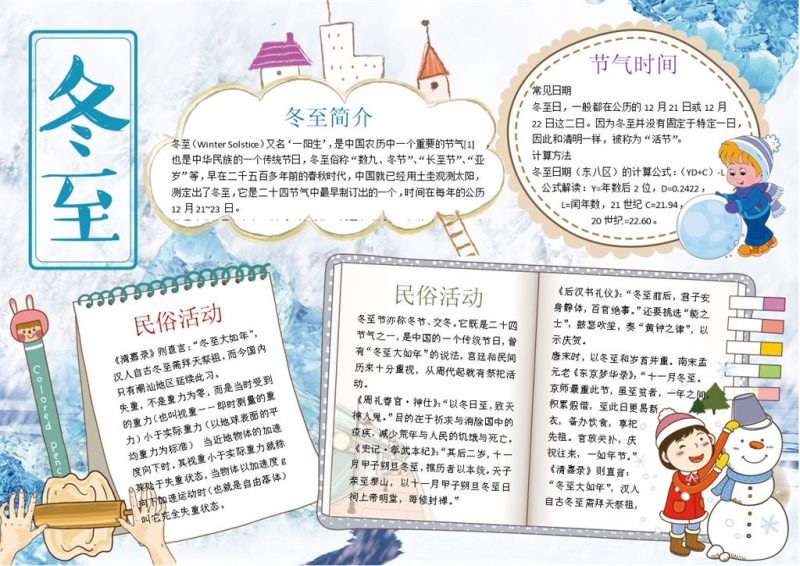 冬至
冬至简介
冬至（Winter Solstice）又名‘一阳生’，是中国农历中一个重要的节气[1]，
也是中华民族的一个传统节日，冬至俗称“数九、冬节”、“长至节”、“亚
岁”等，早在二千五百多年前的春秋时代，中国就已经用土圭观测太阳，
测定出了冬至，它是二十四节气中最早制订出的一个，时间在每年的公历
12月21~23日。
节气时间
常见日期
冬至日，一般都在公历的12月21日或12月
22日这二日。因为冬至并没有固定于特定一日，
因此和清明一样，被称为“活节”。
计算方法
冬至日期（东八区）的计算公式：（YD+C）-L
公式解读：Y=年数后2位，D=0.2422，
L=闰年数，21世纪C=21.94，
20世纪=22.60。
民俗活动
《清嘉录》则直言：“冬至大如年”，
汉人自古冬至需拜天祭祖，而今国内
只有潮汕地区延续此习。
失重，不是重力为零，而是当时受到
的重力（也叫视重－－即时测量的重
力）小于实际重力（以地球表面的平
均重力为标准） 当近地物体的加速
度向下时，其视重小于实际重力就称
其处于失重状态，当物体以加速度g
向下加速运动时（也就是自由落体）
叫它完全失重状态。
Colored Penc
民俗活动
冬至节亦称冬节、交冬。它既是二十四
节气之一，是中国的一个传统节日，曾
有“冬至大如年”的说法，宫廷和民间
历来十分重视，从周代起就有祭祀活
动。
《周礼春官·神仕》：“以冬日至，致天
神人鬼。”目的在于祈求与消除国中的
疫疾，减少荒年与人民的饥饿与死亡。
《史记·孝武本纪》：“其后二岁，十一
月甲子朔旦冬至，推历者以本统。天子
亲至泰山，以十一月甲子朔旦冬至日
祠上帝明堂，每修封禅。”
《后汉书礼仪》：“冬至前后，君子安
身静体，百官绝事。”还要挑选“能之
士”，鼓瑟吹笙，奏“黄钟之律”，以
示庆贺。
唐宋时，以冬至和岁首并重。南宋孟
元老《东京梦华录》：“十一月冬至。
京师最重此节，虽至贫者，一年之间，
积累假借，至此日更易新
衣，备办饮食，享祀
先祖。官放关扑，庆
祝往来，一如年节。”
《清嘉录》则直言：
“冬至大如年”，汉人
自古冬至需拜天祭祖，